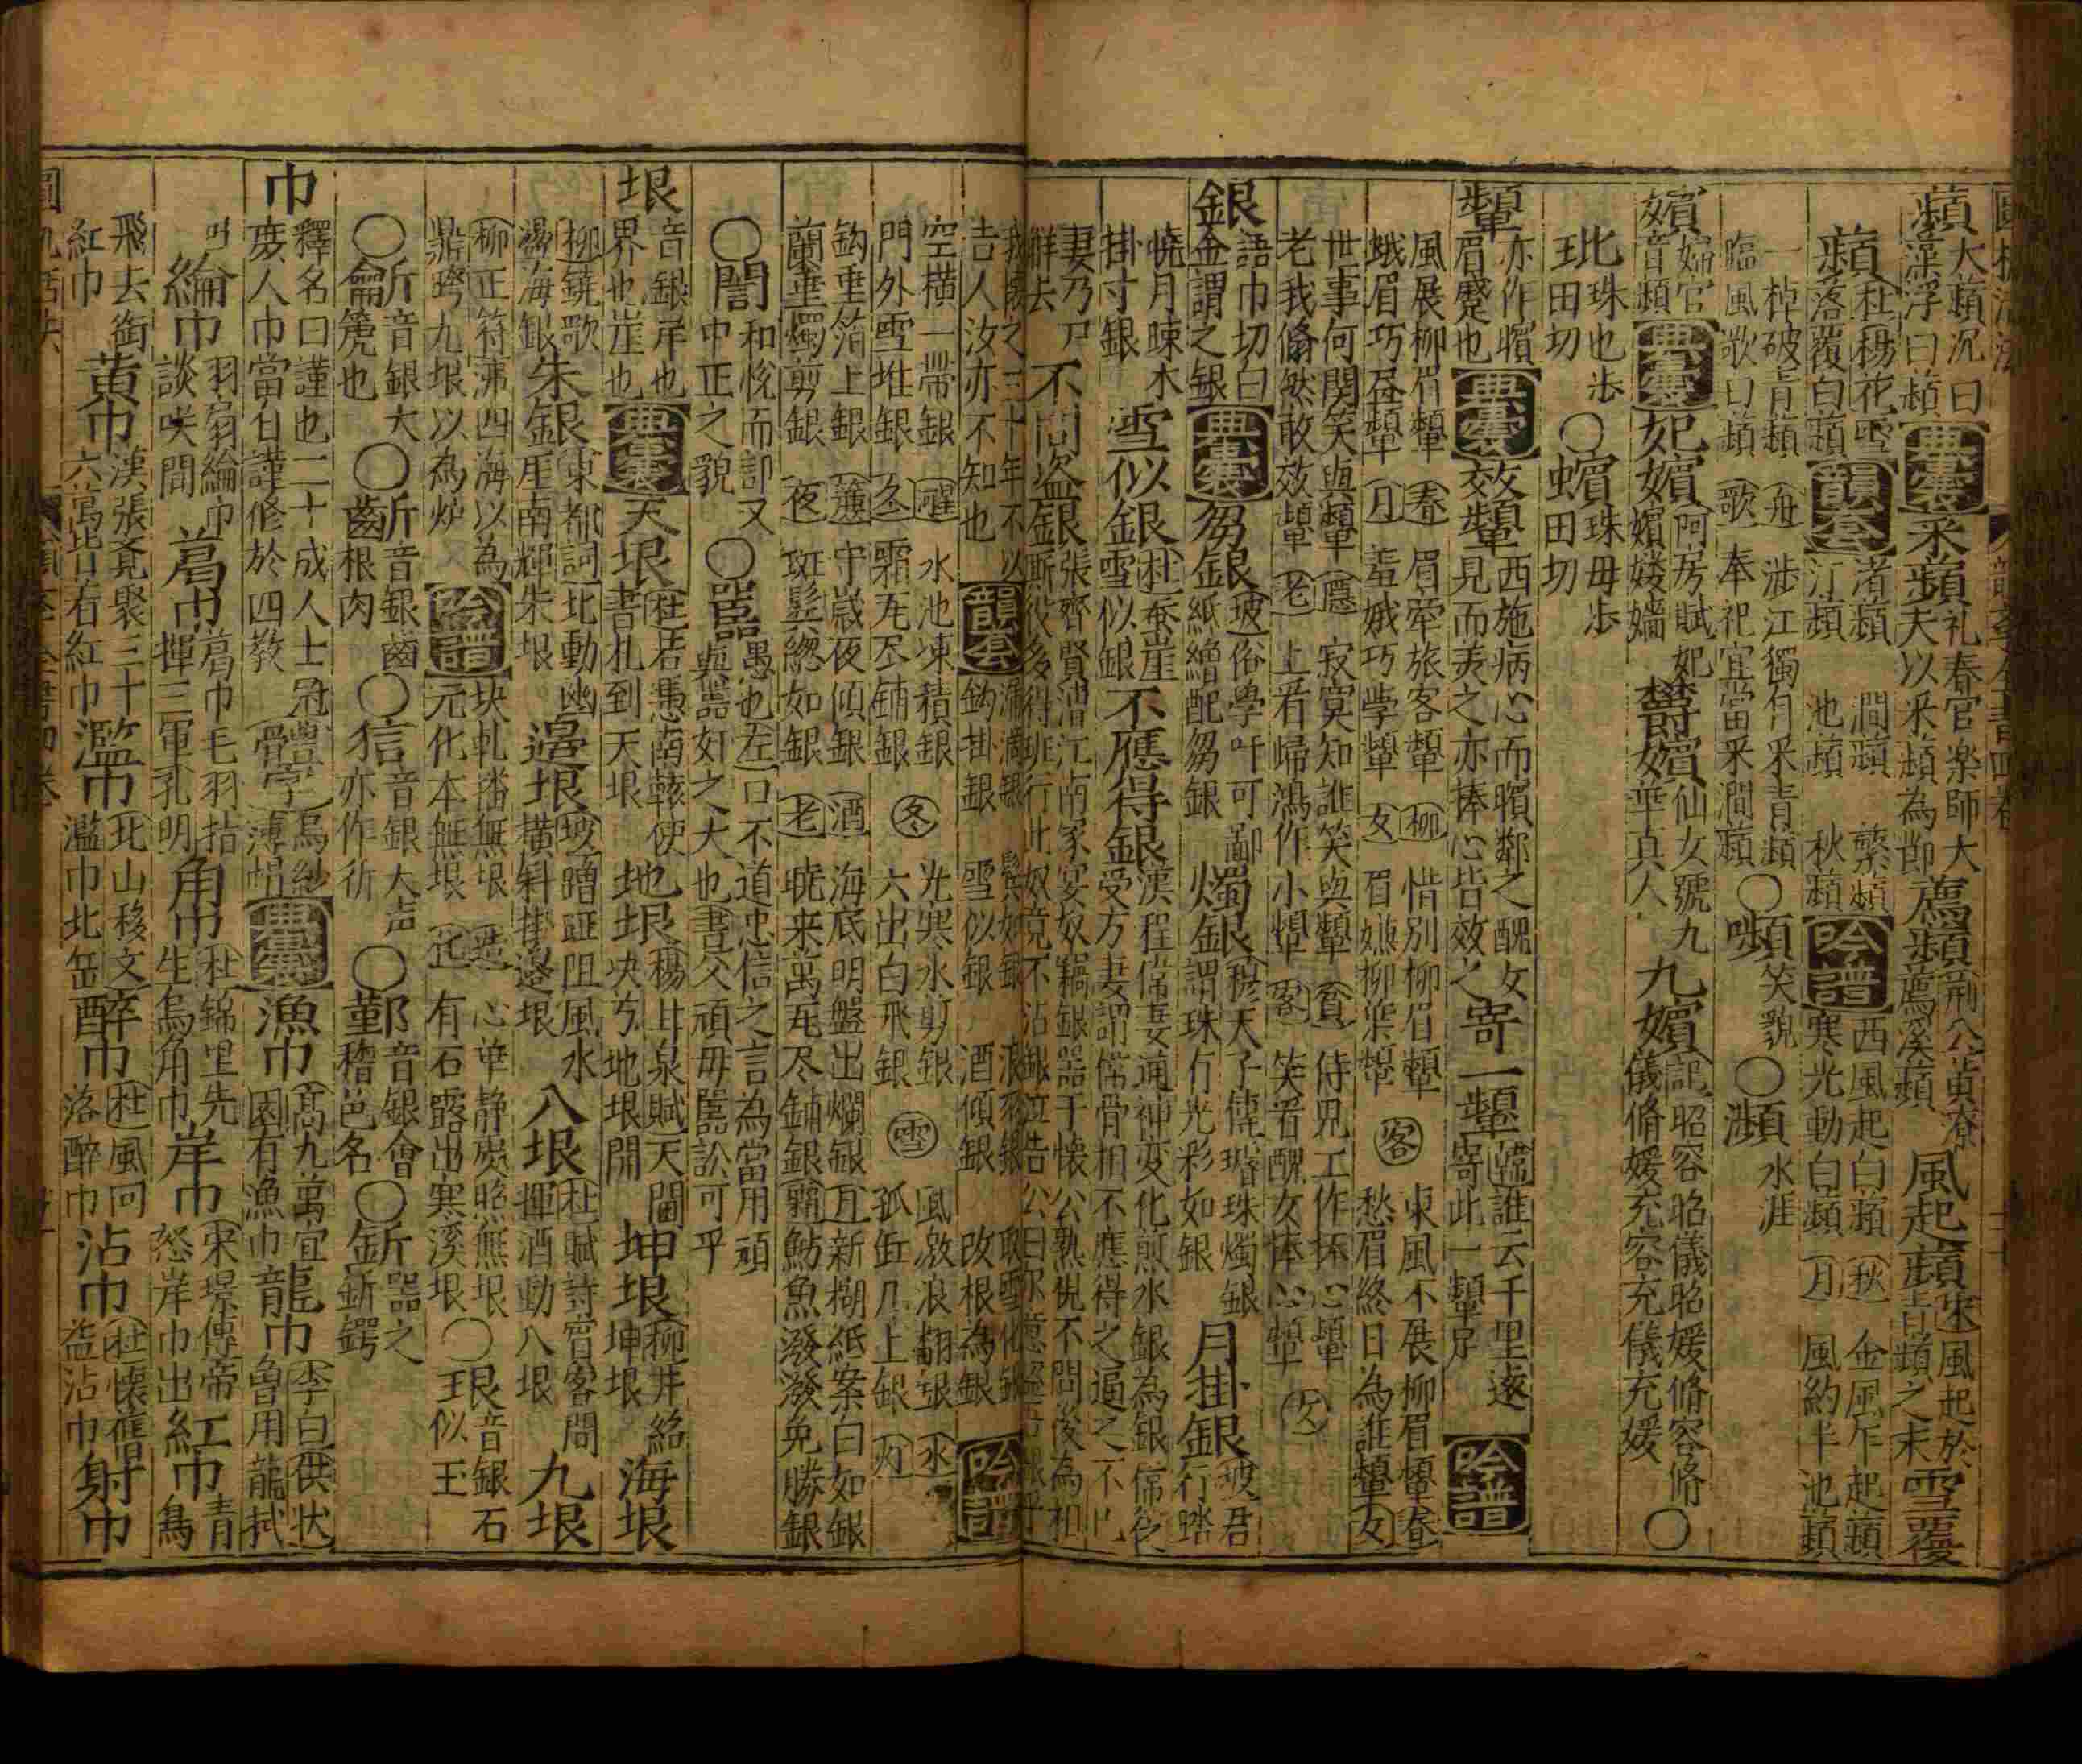 蘋大蘋沉曰藻浮曰蘋典彙采蘋礼春官楽師大夫以采蘋為節薦蘋荊公黄潦薦溪蘋風起蘋宋風起於青蘋之末雪覆
蘋杜楊花雪落覆白蘋韻套渚蘋江蘋澗蘋池蘋蘩蘋秋蘋吟譜西風起白蘋寒光動白蘋秋金風乍起蘋月風約半池蘋
一棹破青蘋舟渉江獨自采青蘋臨風歌白蘋歌奉祀宜當采澗蘋○嚬笑貌○瀕水涯
嬪婦官音頻典彙妃嬪阿房賦妃嬪媵嬙欝嬪仙女號九華真人九嬪記昭容昭儀昭媛脩容脩儀脩媛充容充儀充媛○
玭珠也步田切○蠙珠母步田切
顰亦作矉眉蹙也典彙效顰西施病心而矉鄰之醜女見而美之亦捧心皆效之寄一顰韓誰云千里遂寄此一顰足吟譜
風展柳眉顰春眉牽旅客顰柳惜別柳眉顰客東風不展柳眉顰春
蛾眉巧盡顰月羞娥巧學顰女眉嫌柳葉顰愁眉終日為誰顰女
世事何関笑與顰隱寂寞知誰笑與顰貧侍児工作捧心顰
老我翛然敢效顰老上看帰鴻作小顰客笑看醜女捧心顰
銀語巾切白金謂之銀典彙芴銀坡俗學吁可鄙紙繒配芴銀燭銀穆天子傳璿珠燭銀謂珠有光彩如銀月掛銀坡君行踏
暁月疎木掛寸銀雪似銀杜蚕崖雪似銀不應得銀漢程偉妻通神変化煎水銀為銀偉從受方妻謂偉骨相不應得之逼之不已
妻乃尸解去不問盜銀張齊賢漕江南家宴奴竊銀器于懐公熟視不問後為相厮役多得班行此奴竟不沾
我懐之三十年不以告人汝亦不知也韻套鈎掛銀雪似銀酒傾銀改根為銀吟譜
空橫一帶銀水池凍積銀冬光寒水剪銀雪風激浪翻銀水
門外雪堆銀冬霜瓦尽鋪銀六出白飛銀孤缸几上銀
鈎垂箔上銀簾守歳夜傾銀酒海底明盤出爛銀瓦新糊紙案白如銀
蘭垂燭剪銀夜斑髭總如銀老暁来萬瓦尽鋪銀霜鮎魚潑潑免勝銀
○誾和悅而諍又中正之貌○嚚愚也左口不道忠信之言為當用頑與嚚奸之大也書父頑母嚚訟可乎
垠音銀岸也界也崖也典彙天垠杜君患南轅使書札到天垠地垠楊甘泉賦天閫決兮地垠開坤垠柳井絡坤垠海垠
柳鐃歌盪海銀朱銀東都詞北動幽崖南輝朱垠邉垠坡贈証阻風水橫斜掛邉垠八垠杜賦詩宿客問揮酒動八垠九垠
柳正符沸四海以為鼎跨九垠以為炉吟譜块軋播無垠造心華静炭照無垠元化本無垠近有石露出寒溪垠○珢音銀石似玉
○龂音銀大篪也○齗音銀齒根肉○狺音銀大声亦作㹞○鄞音銀會稽邑名○釿器之釿鍔
巾釋名曰謹也二十成人士冠庶人巾當自謹修於四教烏紗薄帽典彙漁巾高九萬宜園有漁巾龍巾李白供状曾用龍拭
綸巾羽扇綸巾談咲間葛巾葛巾毛羽拮揮三軍孔明角巾杜錦里先生烏角巾岸巾宋璟傳帝怒岸巾出紅巾青鳥
飛去銜紅巾黄巾漢張竟聚三十六萬皆着紅巾濫巾北山移文濫巾北缶醉巾杜風回落醉巾沾巾杜懐舊盜沾巾射巾